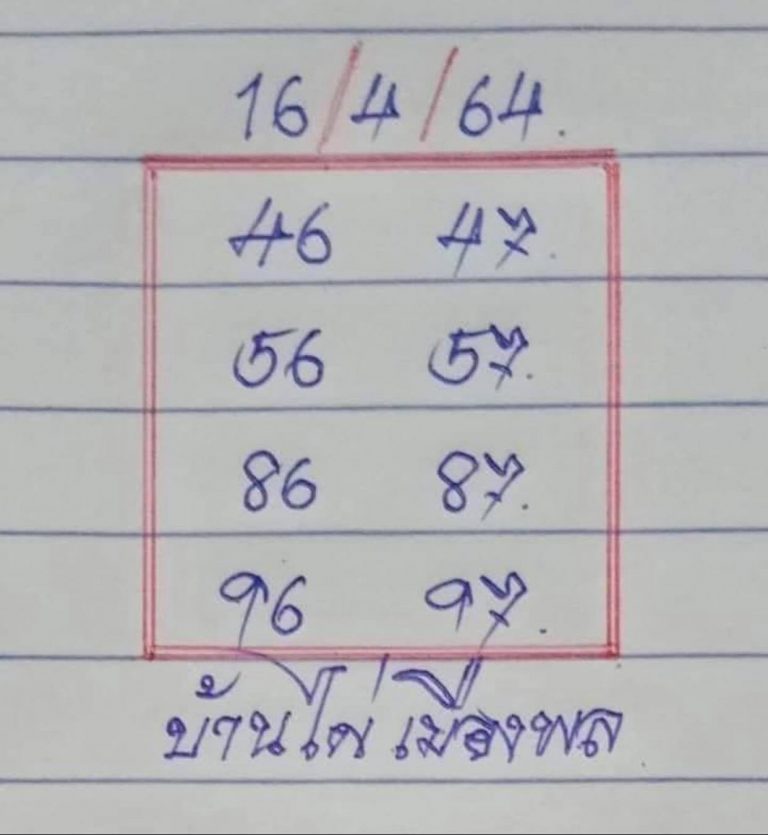 16/4/64.
46 47.
56 57.
86 87.
96 97.
บ้านไผ่ เมืองพล